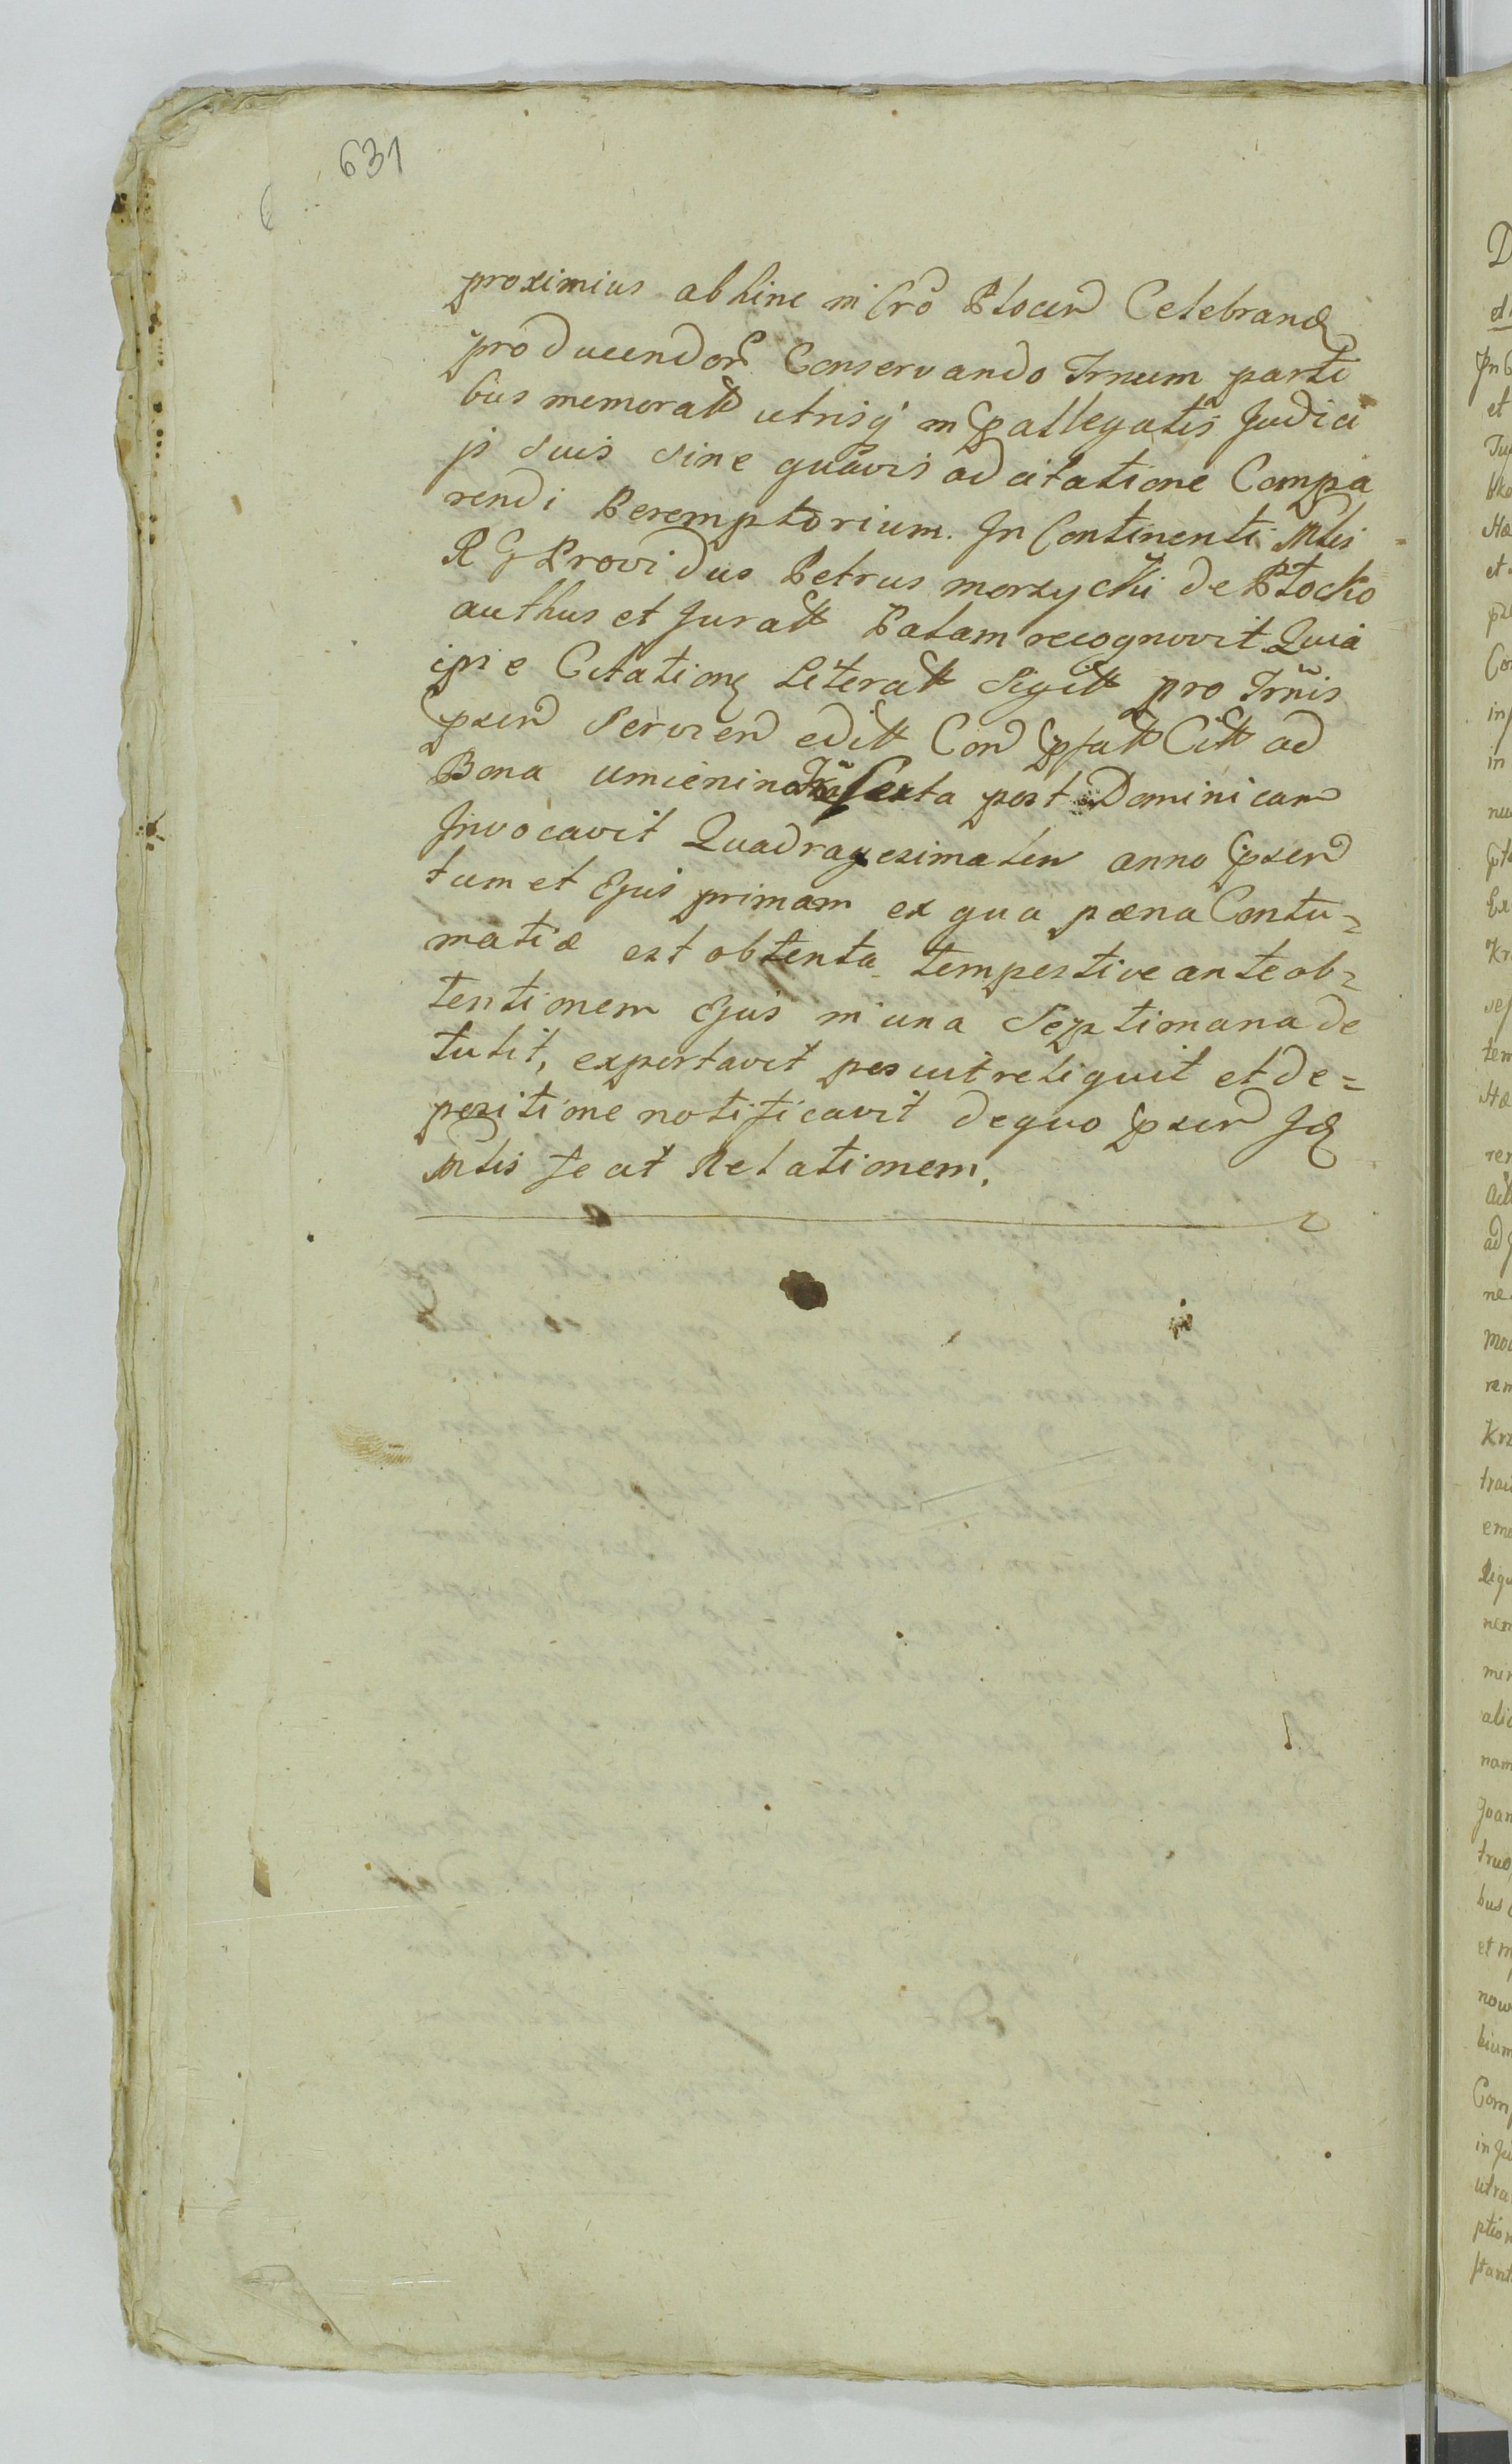 631
proximius abhinc in Cro Plocen Celebrand
producendor Conservando Trnum parti
bus memoratt utrisq in pallegatis Judici
js suis sine quavis adcitatione Compa
rendi Peremptorium. In Continenti Mtis
R G Providus Petrus morzychi de Płocko
authus et Juratt Palam recognovit Quia
ipse Citationę Literatt Sigitt pro Trnis
pxen Servien editt Con pfatt Citt ad
Bona umienino Fria Sexta post Dominicam
Invocavit Quadragesimalem anno pxen
tum et Ejus primam ex qua pæna Contu=
matiæ est obtenta tempestive ante ob=
tentionem Ejus in una Septimana de
tulit, exportavit posuit reliquit et de=
pozitione notificavit dequo pxen Jd
Mtis fe at Relationem.